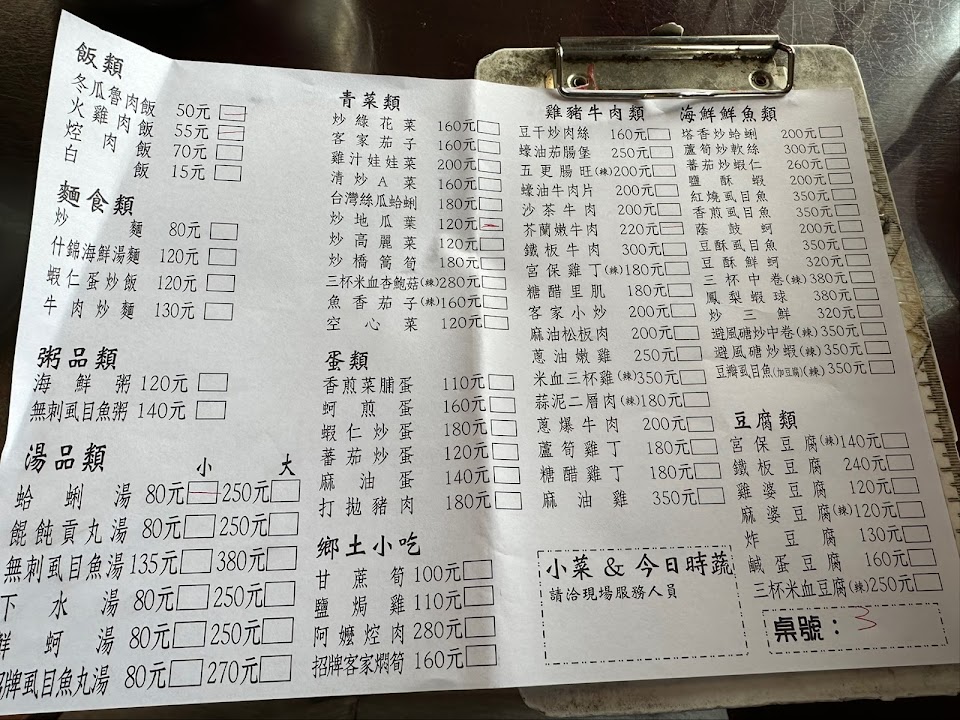 飯類
冬瓜魯肉飯 50元
火雞肉飯 55元
焢肉飯 70元
白飯 15元
麵食類
炒麵 80元
什錦海鮮湯麵 120元
蝦仁蛋炒飯 120元
牛肉炒麵 130元
粥品類
海鮮粥 120元
無刺虱目魚粥 140元
湯品類
小 大
蛤蜊湯 80元 250元
餛飩貢丸湯 80元 250元
無刺虱目魚湯 135元 380元
下水湯 80元 250元
鮮蚵湯 80元 250元
招牌虱目魚丸湯 80元 270元
青菜類
炒綠花菜 160元
客家茄子 160元
雞汁娃娃菜 200元
清炒A菜 160元
台灣絲瓜蛤蜊 180元
炒地瓜葉 120元
炒高麗菜 120元
炒橋筊筍 180元
三杯米血杏鮑菇(辣)280元
魚香茄子(辣)160元
空心菜 120元
蛋類
香煎菜脯蛋 110元
蚵煎蛋 160元
蝦仁炒蛋 180元
蕃茄炒蛋 120元
麻油蛋 140元
打拋豬肉 180元
鄉土小吃
甘蔗筍 100元
鹽焗雞 110元
阿嬤焢肉 280元
招牌客家燜筍 160元
雞豬牛肉類
豆干炒肉絲 160元
蠔油茄腸堡 250元
五更腸旺(辣)200元
蠔油牛肉片 200元
沙茶牛肉 200元
芥蘭嫩牛肉 220元
鐵板牛肉 300元
宮保雞丁(辣)180元
糖醋里肌 180元
客家小炒 200元
麻油松板肉 200元
蔥油嫩雞 250元
米血三杯雞(辣)350元
蒜泥二層肉(辣)180元
蔥爆牛肉 200元
蘆筍雞丁 180元
糖醋雞丁 180元
麻油雞 350元
小菜 & 今日時蔬
請洽現場服務人員
海鮮鮮魚類
塔香炒蛤蜊 200元
蘆筍炒軟絲 300元
蕃茄炒蝦仁 260元
鹽酥蝦 200元
紅燒虱目魚 350元
香煎虱目魚 350元
蔭鼓蚵 200元
豆酥虱目魚 350元
豆酥鮮蚵 320元
三杯中卷(辣)380元
鳳梨蝦球 380元
炒三鮮 320元
避風磄炒中卷(辣)350元
避風磄炒蝦(辣)350元
豆瓣虱目魚(加豆腐)(辣)350元
豆腐類
宮保豆腐(辣)140元
鐵板豆腐 240元
雞婆豆腐 120元
麻婆豆腐(辣)120元
炸豆腐 130元
鹹蛋豆腐 160元
三杯米血豆腐(辣)250元
桌號：3